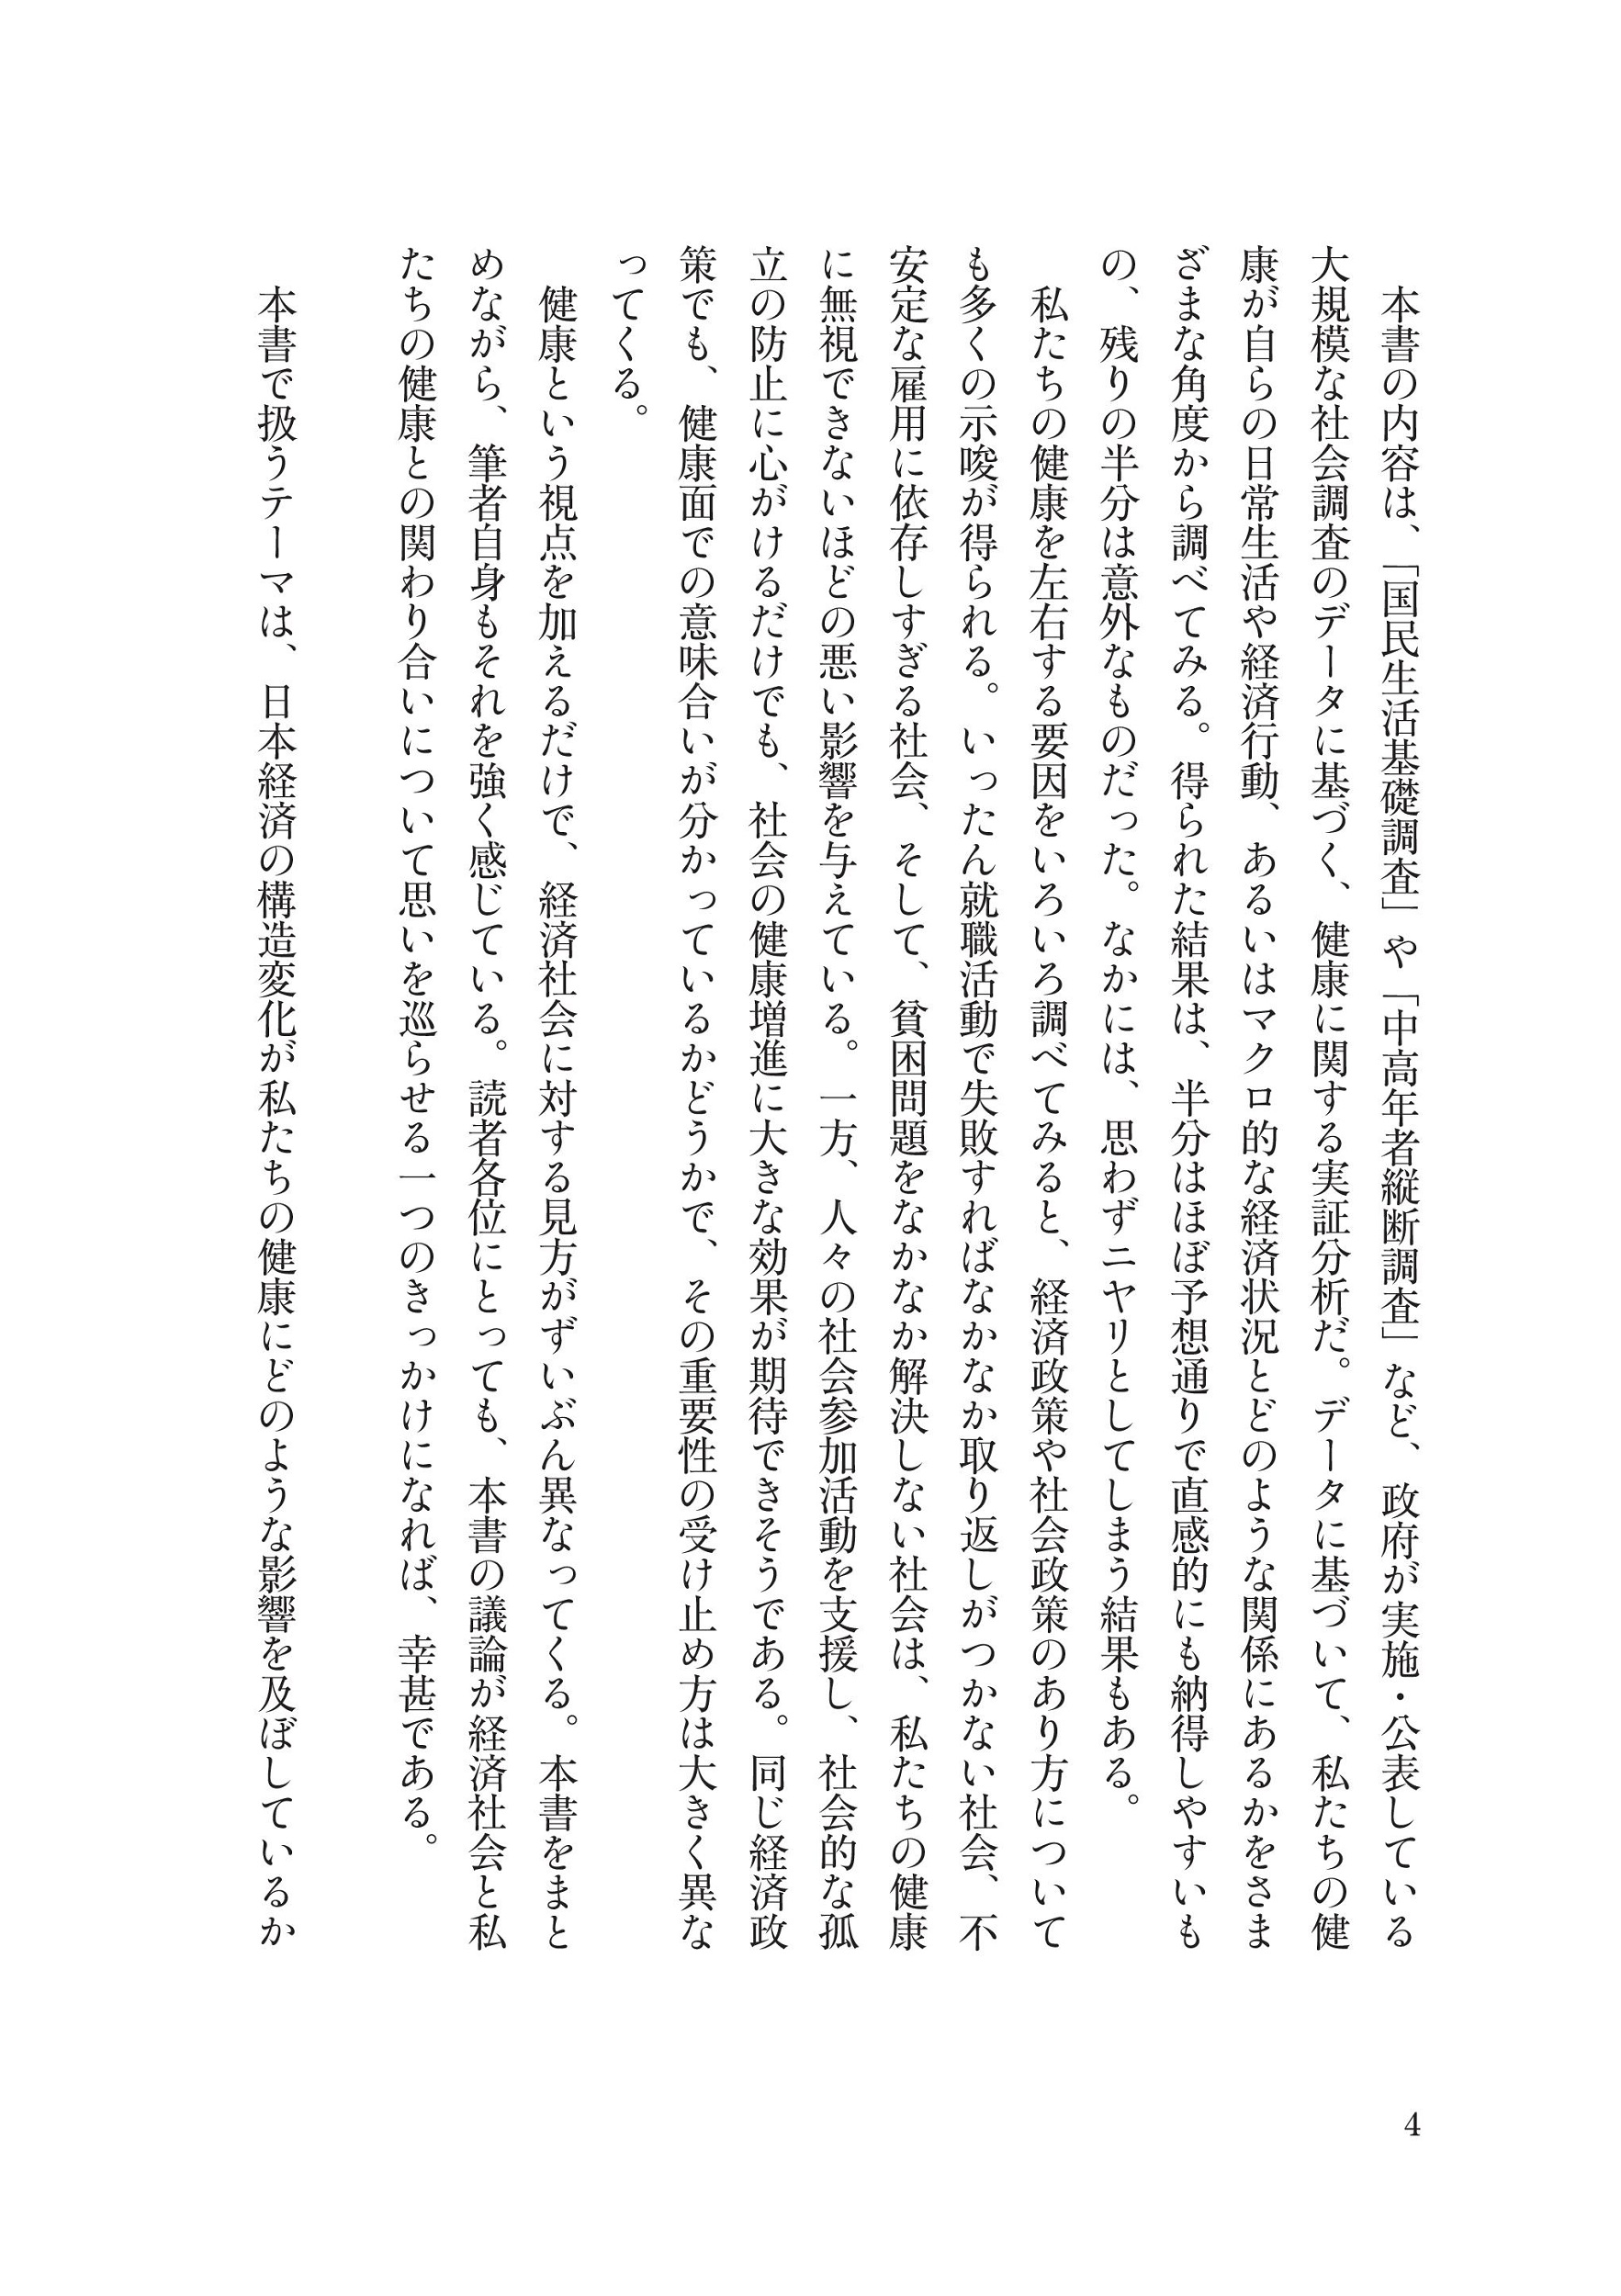 本書の内容は、「国民生活基礎調査」や「中高年者縦断調査」など、政府が実施・公表している
大規模な社会調査のデータに基づく、健康に関する実証分析だ。データに基づいて、私たちの健
康が自らの日常生活や経済行動、あるいはマクロ的な経済状況とどのような関係にあるかをさま
ざまな角度から調べてみる。得られた結果は、半分はほぼ予想通りで直感的にも納得しやすいも
の、残りの半分は意外なものだった。なかには、思わずニヤリとしてしまう結果もある。
私たちの健康を左右する要因をいろいろ調べてみると、経済政策や社会政策のあり方について
も多くの示唆が得られる。いったん就職活動で失敗すればなかなか取り返しがつかない社会、不
安定な雇用に依存しすぎる社会、そして、貧困問題をなかなか解決しない社会は、私たちの健康
に無視できないほどの悪い影響を与えている。一方、人々の社会参加活動を支援し、社会的な孤
立の防止に心がけるだけでも、社会の健康増進に大きな効果が期待できそうである。同じ経済政
策でも、健康面での意味合いが分かっているかどうかで、その重要性の受け止め方は大きく異な
ってくる。
健康という視点を加えるだけで、経済社会に対する見方がずいぶん異なってくる。本書をまと
めながら、筆者自身もそれを強く感じている。読者各位にとっても、本書の議論が経済社会と私
たちの健康との関わり合いについて思いを巡らせる一つのきっかけになれば、幸甚である。
本書で扱うテーマは、日本経済の構造変化が私たちの健康にどのような影響を及ぼしているか
4